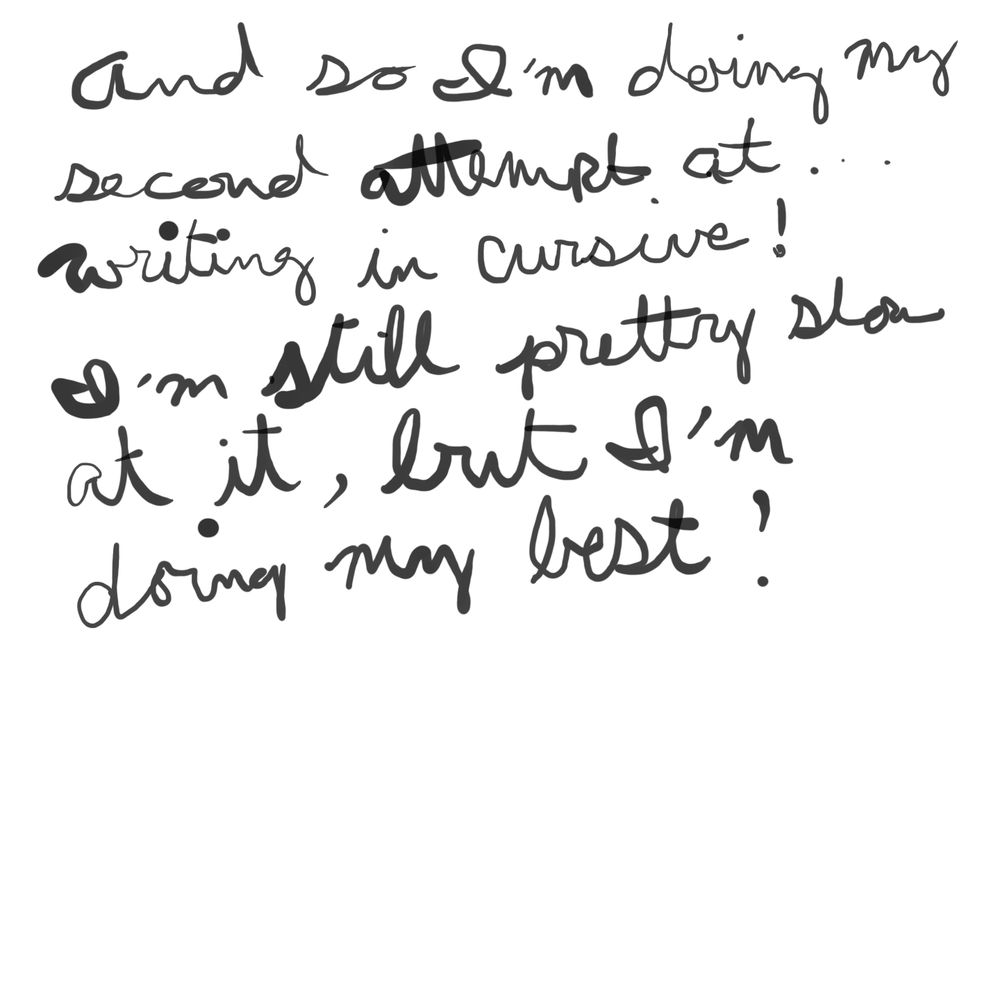 and so I'm doing my
second attempt at...
writing in cursive!
I'm still pretty slow
at it, but I'm
doing my best!